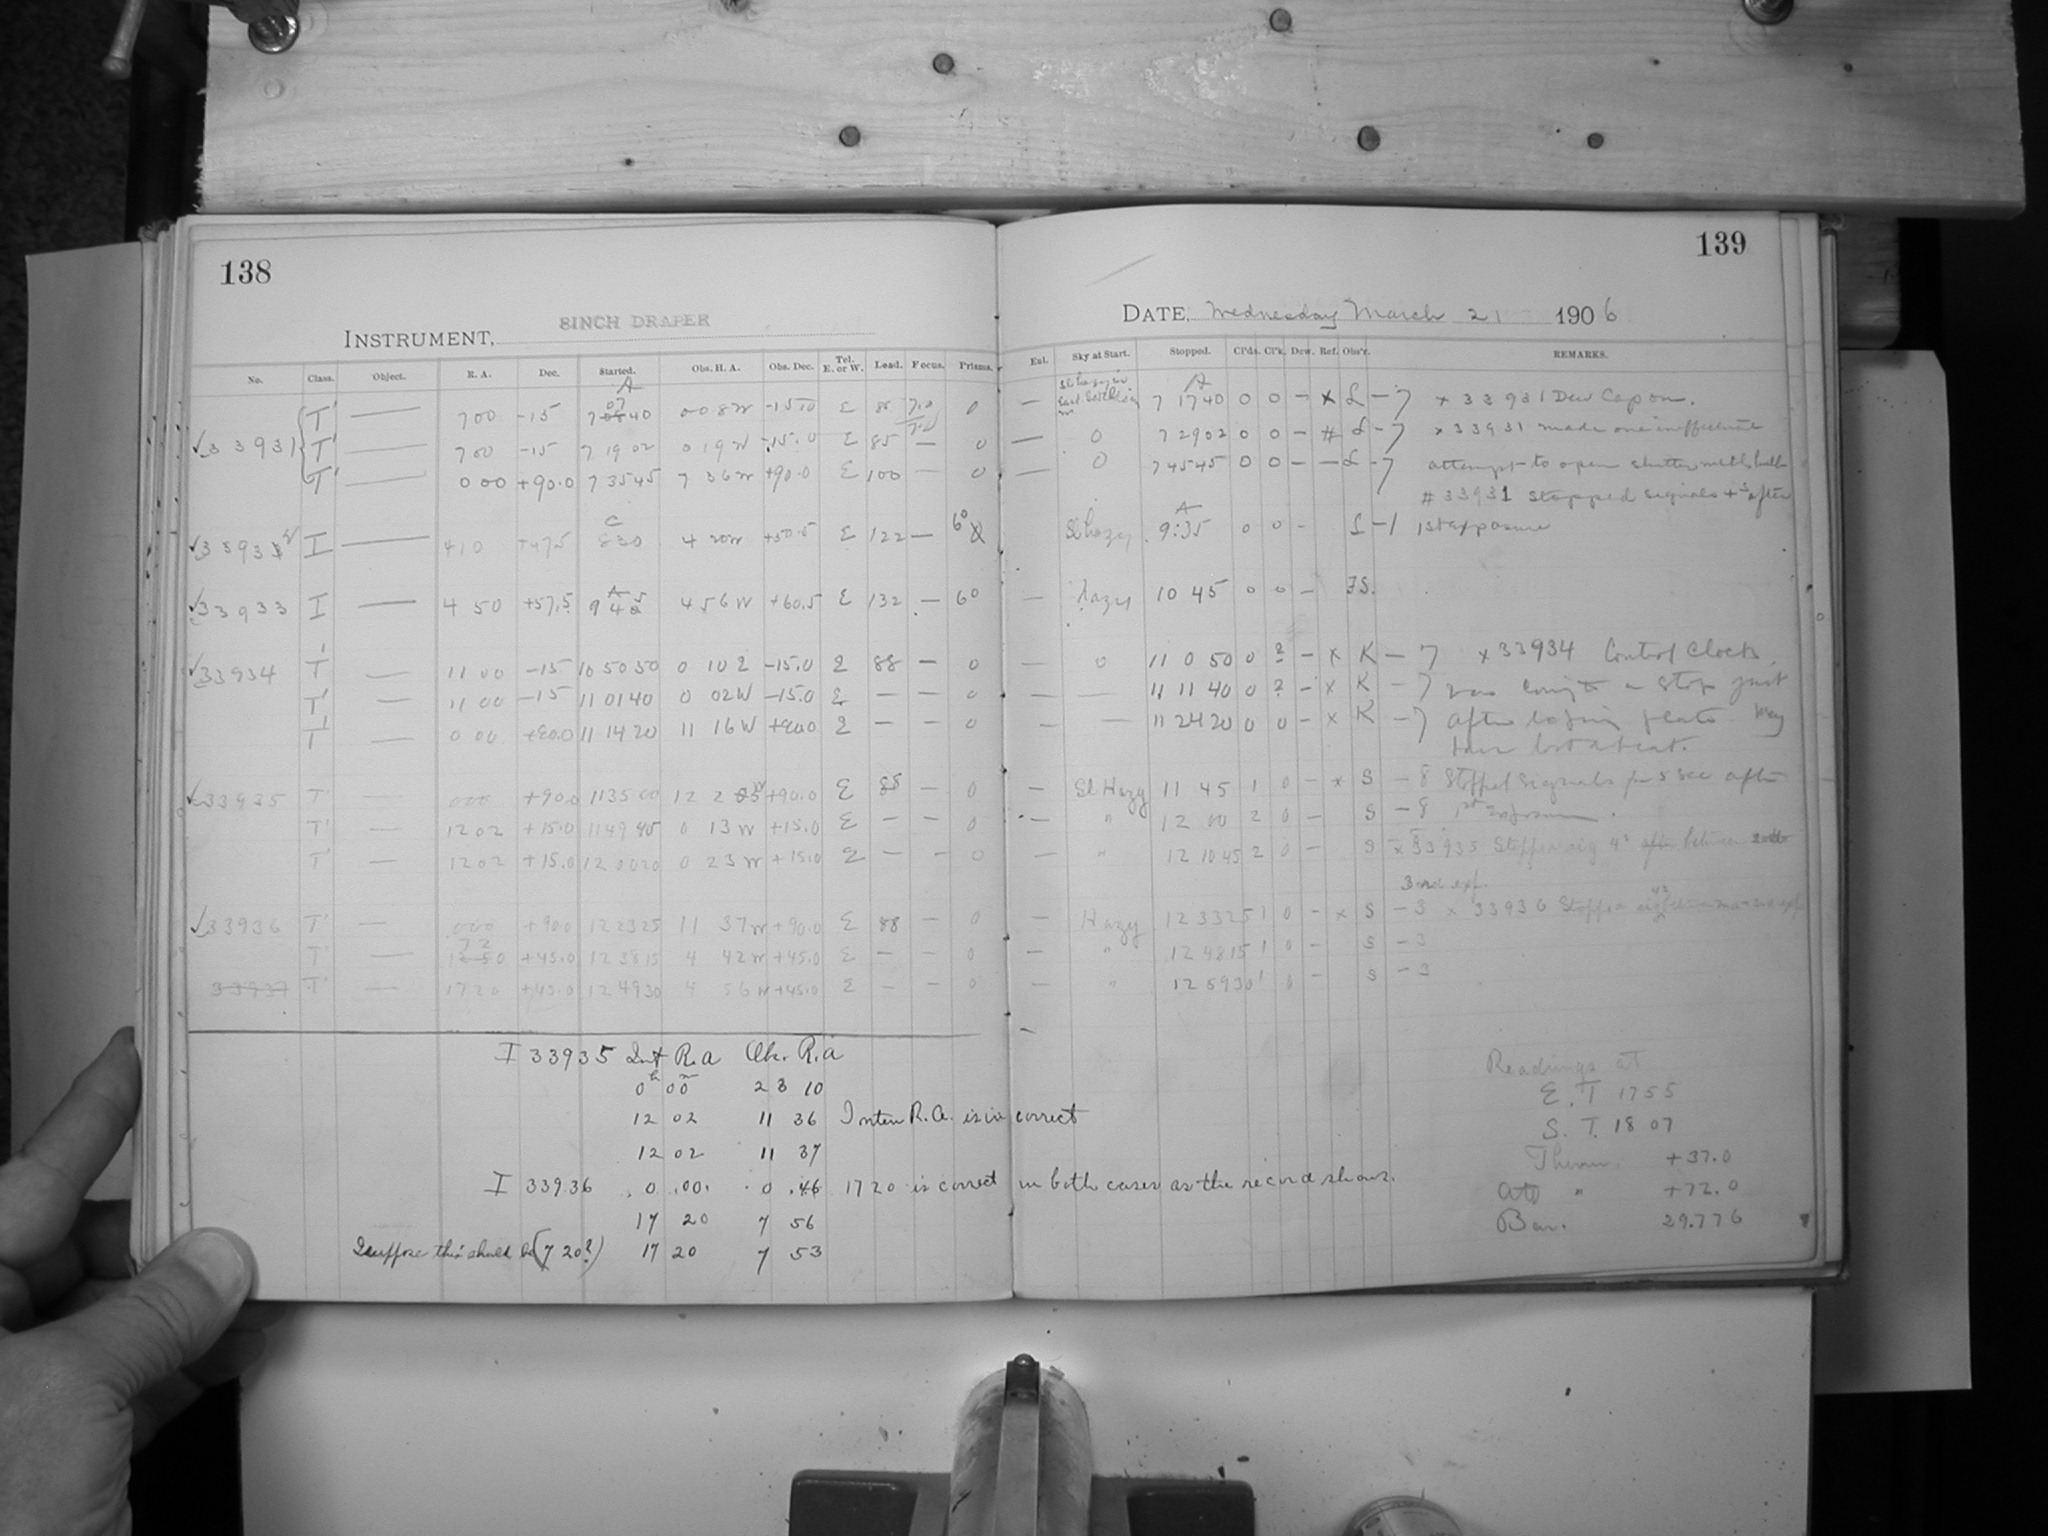 138
INSTRUMENT, 8INCH DRAPER
No. Class. Object. R. A. Dec. Started. Obs. H. A. Obs. Dec. Tel. E. or W. Load. Focus. Prisms.
A
T' — 7 00 -15 0 0 8 W -15.0 E 0
33931 T' — 7 00 -15 7 19 02 0 19 W -15.0 E 85 — 0
T' — 0 00 +90.0 7 35 45 7 36 W +90.0 E 100 — 0
I — 4 10 +47.5 830 4 20W +50.5 E 122 — 6°
33933 I — 4 50 +57.5 9 4 4 56 W +60.5 E 132 — 6°
33934 T' — 11 00 -15 10 50 50 0 10 E -15.0 E 88 — 0
T' — 11 00 -15 11 01 40 0 02W -15.0 E — — 0
T' — 0 00 11 14 20 11 16 W E — — 0
33935 T' — 000 +90.0 11 35 00 12 2 +90.0 E 88 — 0
T' — 12 02 +15.0 11 49 45 0 13 W +15.0 E — — 0
T' — 12 02 +15.0 12 00 20 0 23 W +15.0 E — — 0
33936 T' — 000 +90.0 12 23 25 11 37 W +90.0 E 88 — 0
T' — +45.0 12 38 15 4 42 W +45.0 E — — 0
33937 T' — 17 20 +45.0 12 49 30 4 56 W +45.0 E — — 0
I 33935 Int R.a Obs. R.a
0h 00m 23 10
12 02 11 36 Inten R.A. is in correct
12 02 11 37
I 33936 0 00 0 46 17 20 is correct in both cases as the record shows.
17 20 7 56
I suppose this should be (7 20?) 17 20 7 53
139
DATE, Wednesday March 21 1906
Ext. Sky at Start. Stopped. Cl'ds. Cl'k. Dew. Ref. Obs'r. REMARKS.
A
— 7 17 40 0 0 - x L - 7 x 33931 Dew Cap on.
— 0 7 29 02 0 0 - # L - 7 x 33931 made one ineffectual
— 0 7 45 45 0 0 - - L - 7 attempt to open shutter with bulb
# 33931 stopped signals after
A
Sl hazy 9:35 0 0 - L - 1 1st exposure
— hazy 10 45 0 0 - FS.
— 0 11 0 50 0 2 - x K - 7 x 33934 Control Clock
— — 11 11 40 0 2 - x K - 7 was to a stop just
— — 11 24 20 0 0 - x K - 7 after plate. May
have lost a beat.
— Sl Hazy 11 45 1 0 - x S - 8 Stopped signals for 5 sec after
— " 12 00 2 0 - S - 8 1st exposure.
— " 12 10 45 2 0 - S - 8 x 33935 Stopped sig 4s
exp.
— Hazy 12 33 25 1 0 - x S - 3 x 33936
— " 12 48 15 1 0 - S - 3
— " 12 59 30 1 0 - S - 3
Readings at
E. T 17 55
S. T. 18 07
Therm. +37.0
Att " +72.0
Bar. 29.776